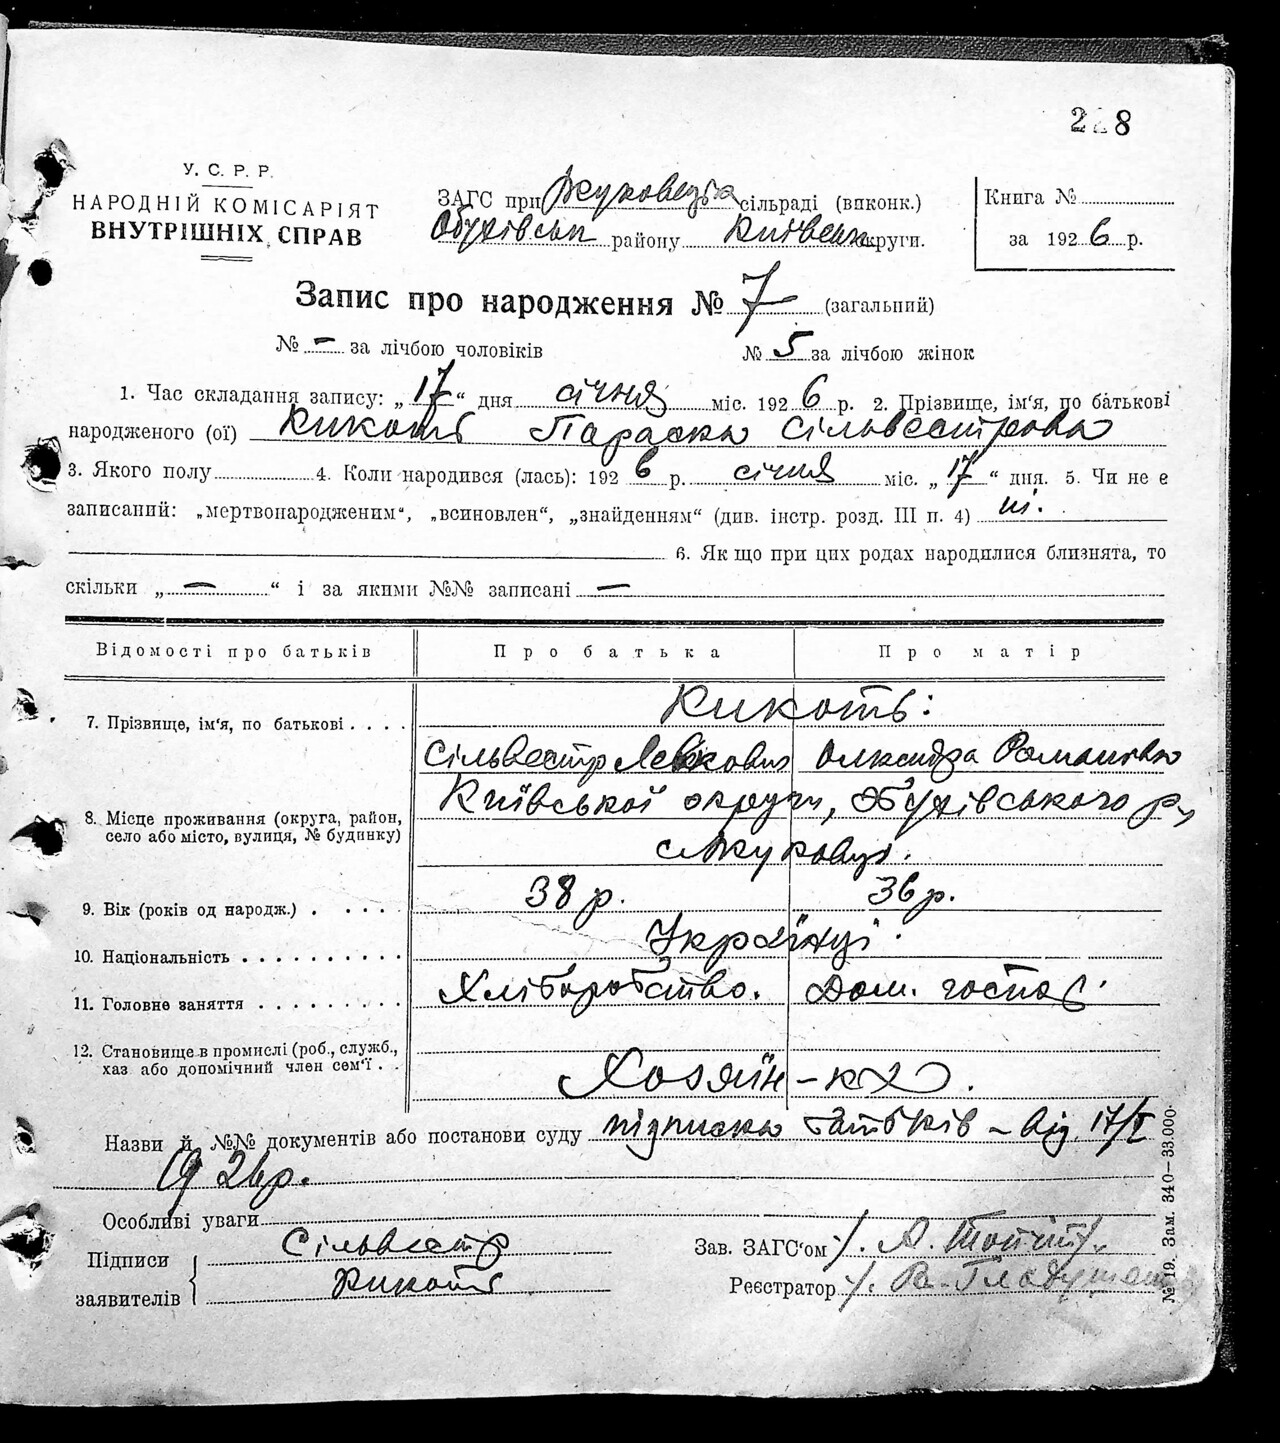 228
У. С. Р. Р.
НАРОДНІЙ КОМІСАРІЯТ
ВНУТРІШНІХ СПРАВ
ЗАГС при сільраді (виконк.)
Обухівськ району Київськ округи.
Книга №
за 1926 р.
Запис про народження № 7 (загальний)
№ – за лічбою чоловіків № 5 за лічбою жінок
1. Час складання запису: „17“ дня січня міс. 1926 р. 2. Прізвище, ім‘я, по батькові
народженого (ої) Кикоть Параска Сільвестрівна
3. Якого полу 4. Коли народився (лась): 1926 р. січня міс. „17“ дня. 5. Чи не є
записаний: „мертвонародженим“, „всиновлен“, „знайденням“ (див. інстр. розд. III п. 4) ні.
6. Як що при цих родах народилися близнята, то
скільки „ – “ і за якими №№ записані –
Відомості про батьків Про батька Про матір
7. Прізвище, ім‘я, по батькові . . . . Кикоть:
Сільвестр Левкович Олександра Романівна
8. Місце проживання (округа, район,
село або місто, вулиця, № будинку)
Київської округи, Обухівського р.,
с. Жуковці.
9. Вік (років од народж.) . . . . . 38 р. 36 р.
10. Національність . . . . . . . . . . Українці.
11. Головне заняття . . . . . . . . . Хліборобство. Дом. господ.
12. Становище в промислі (роб., служб.,
хаз або допомічний член сем‘ї . .
Хозяїн –
Назви й №№ документів або постанови суду підписка батьків – від 17/I
1926 р.
Особливі уваги
Підписи
заявителів
Сільвестр
Кикоть
Зав. ЗАГС‘ом
Реєстратор
№ 19. Зам. 340—33.000.